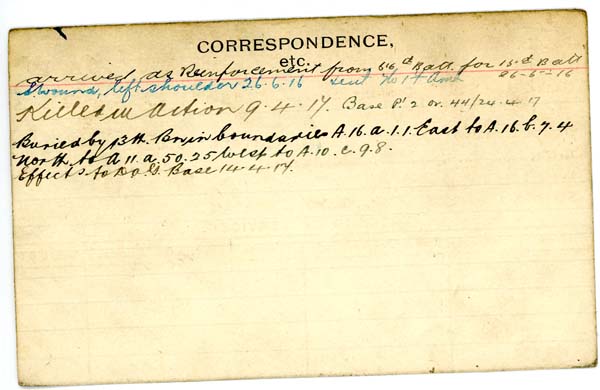 CORRESPONDENCE,
etc.
arrived as Reinforcement from 56th Batt. for 15th Batt
26-5-16
S. wound, left shoulder 26.6.16 sent to 1st
Killed in Action 9.4.17. Base P. 2 or. 44/24.4.17
Buried by Bn in boundaries A.16.a.1.1. East to A.16.b.7.4
North to A 11.a.50.25 West to A.10.c.9.8.
Effects to D.O.S. Base 14.4.17.